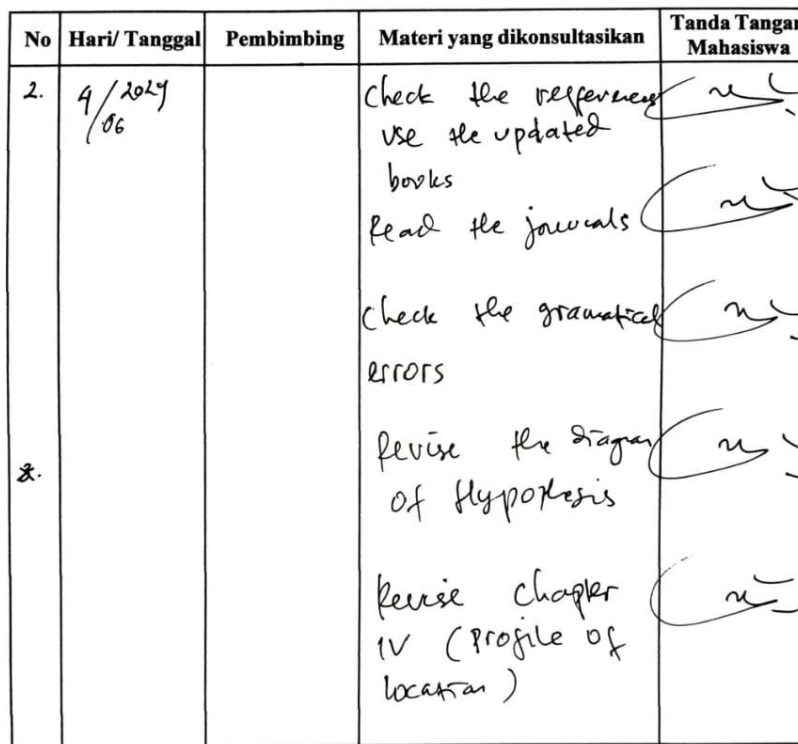 No Hari/ Tanggal Pembimbing Materi yang dikonsultasikan Tanda Tangan Mahasiswa
2. 4/06 2024 Check the refferences
use the updated
books
Read the journals
Check the gramatical
errors
Revise the diagram
of Hypothesis
Revise Chapter
IV (Profile of
location)